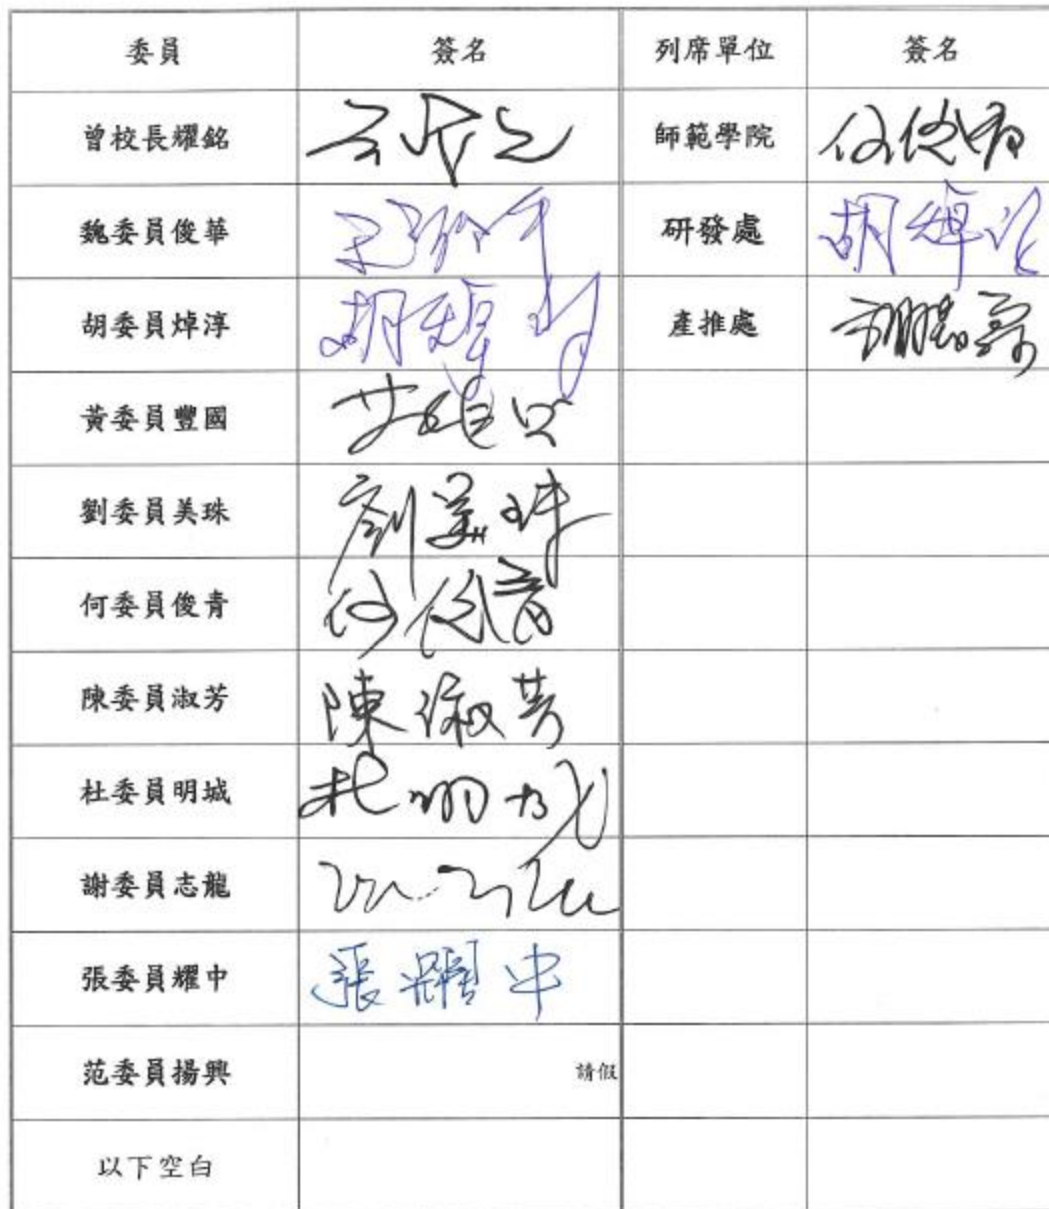 委員 簽名 列席單位 簽名
曾校長耀銘 師範學院
魏委員俊華 研發處
胡委員焯淳 胡焯淳 產推處
黃委員豐國
劉委員美珠 劉美珠
何委員俊青 何俊青
陳委員淑芳 陳淑芳
杜委員明城 杜明城
謝委員志龍
張委員耀中 張耀中
范委員揚興 請假
以下空白